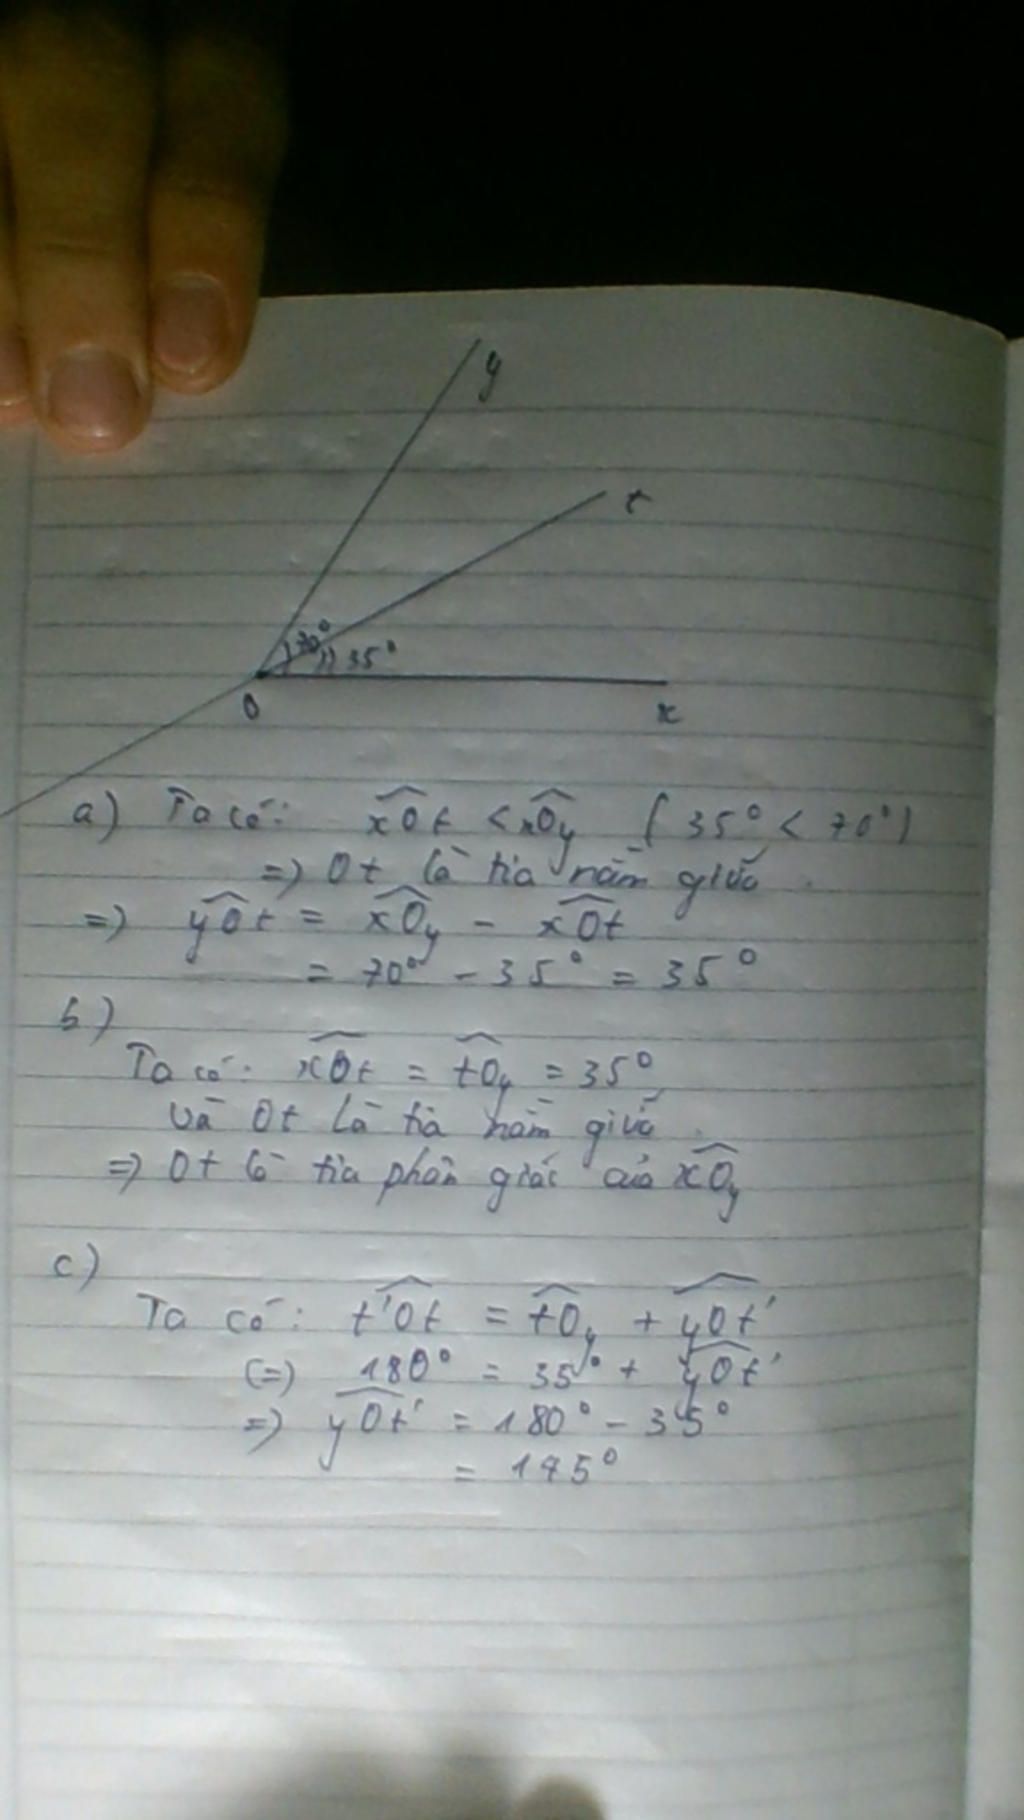 y
t
70°
35°
O
x
a) Ta có: xOt < xOy (35° < 70°)
=> Ot là tia nằm giữa
=> yOt = xOy - xOt
= 70° - 35° = 35°
b)
Ta có: xOt = tOy = 35°
và Ot là tia nằm giữa
=> Ot là tia phân giác của xOy
c)
Ta có: t'Ot = tOy + yOt'
(=) 180° = 35° + yOt'
=> yOt' = 180° - 35°
= 145°